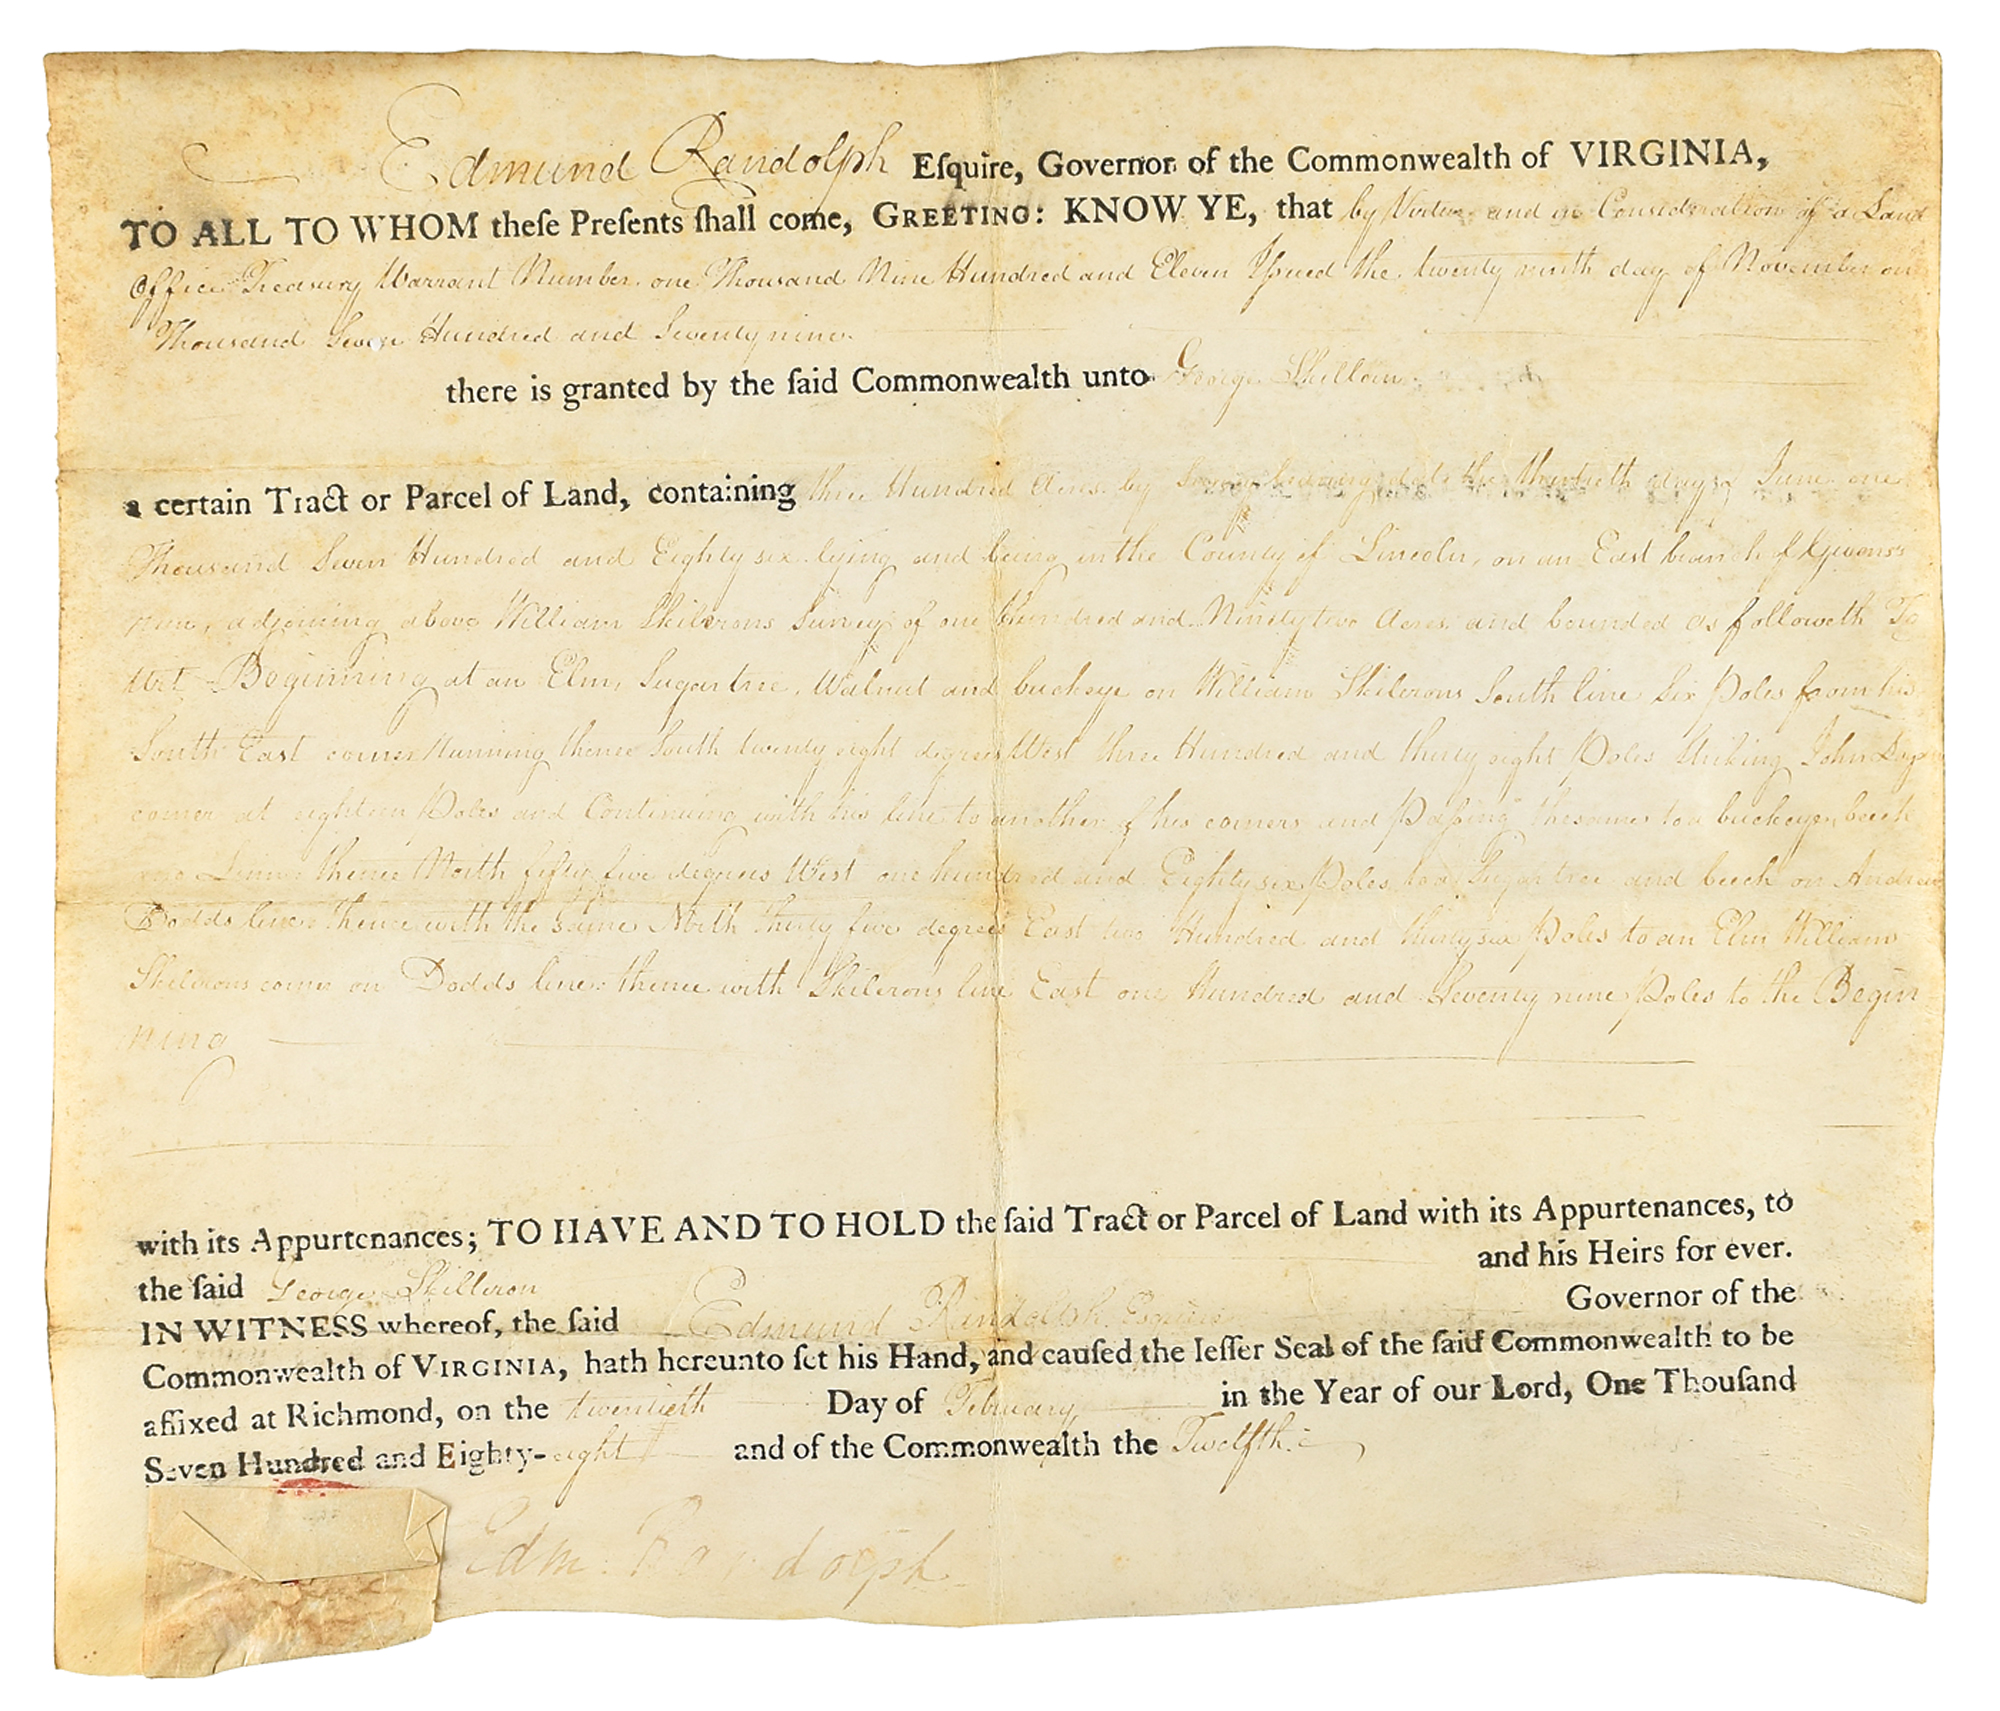 Edmund Randolph Eſquire, Governor of the Commonwealth of VIRGINIA,
TO ALL TO WHOM theſe Preſents ſhall come, GREETING: KNOW YE, that by Virtue and in Consideration of a Land
Office Treasury Warrant Number one Thousand Nine Hundred and Eleven Iſsued the twenty ninth day of November on
Thousand Seven Hundred and Seventy nine
there is granted by the ſaid Commonwealth unto George Skillern
a certain Tract or Parcel of Land, containing three Hundred Acres by Survey bearing date the thirtieth day of June one
Thousand Seven Hundred and Eighty six lying and being in the County of Lincoln, on an East branch of Givens's
run, adjoining above William Skilerons Survey of one Hundred and Ninety two Acres and bounded as followeth To
Wit Beginning at an Elm, Sugartree, Walnut and buckeye on William Skilerons South line Six Poles from his
South East corner Running thence South twenty eight degrees West three Hundred and thirty eight Poles Striking John
corner at eighteen Poles and Continuing with his line to another of his corners and Paſsing the same to a buckeye, beech
and Linn thence North fifty five degrees West one hundred and Eighty six Poles to a Sugartree and beech on Andrew
Dodds line thence with the same North thirty five degrees East two Hundred and thirty six Poles to an Elm William
Skilerons corner on Dodds line thence with Skilerons line East one Hundred and Seventy nine Poles to the Begin
ning
with its Appurtenances; TO HAVE AND TO HOLD the ſaid Tract or Parcel of Land with its Appurtenances, to
the ſaid George Skilleron and his Heirs for ever.
IN WITNESS whereof, the ſaid Edmund Randolph Esquire Governor of the
Commonwealth of VIRGINIA, hath hereunto ſet his Hand, and cauſed the leſſer Seal of the ſaid Commonwealth to be
affixed at Richmond, on the twentieth Day of February in the Year of our Lord, One Thouſand
Seven Hundred and Eighty-eight and of the Commonwealth the Twelfth
Edm. Randolph